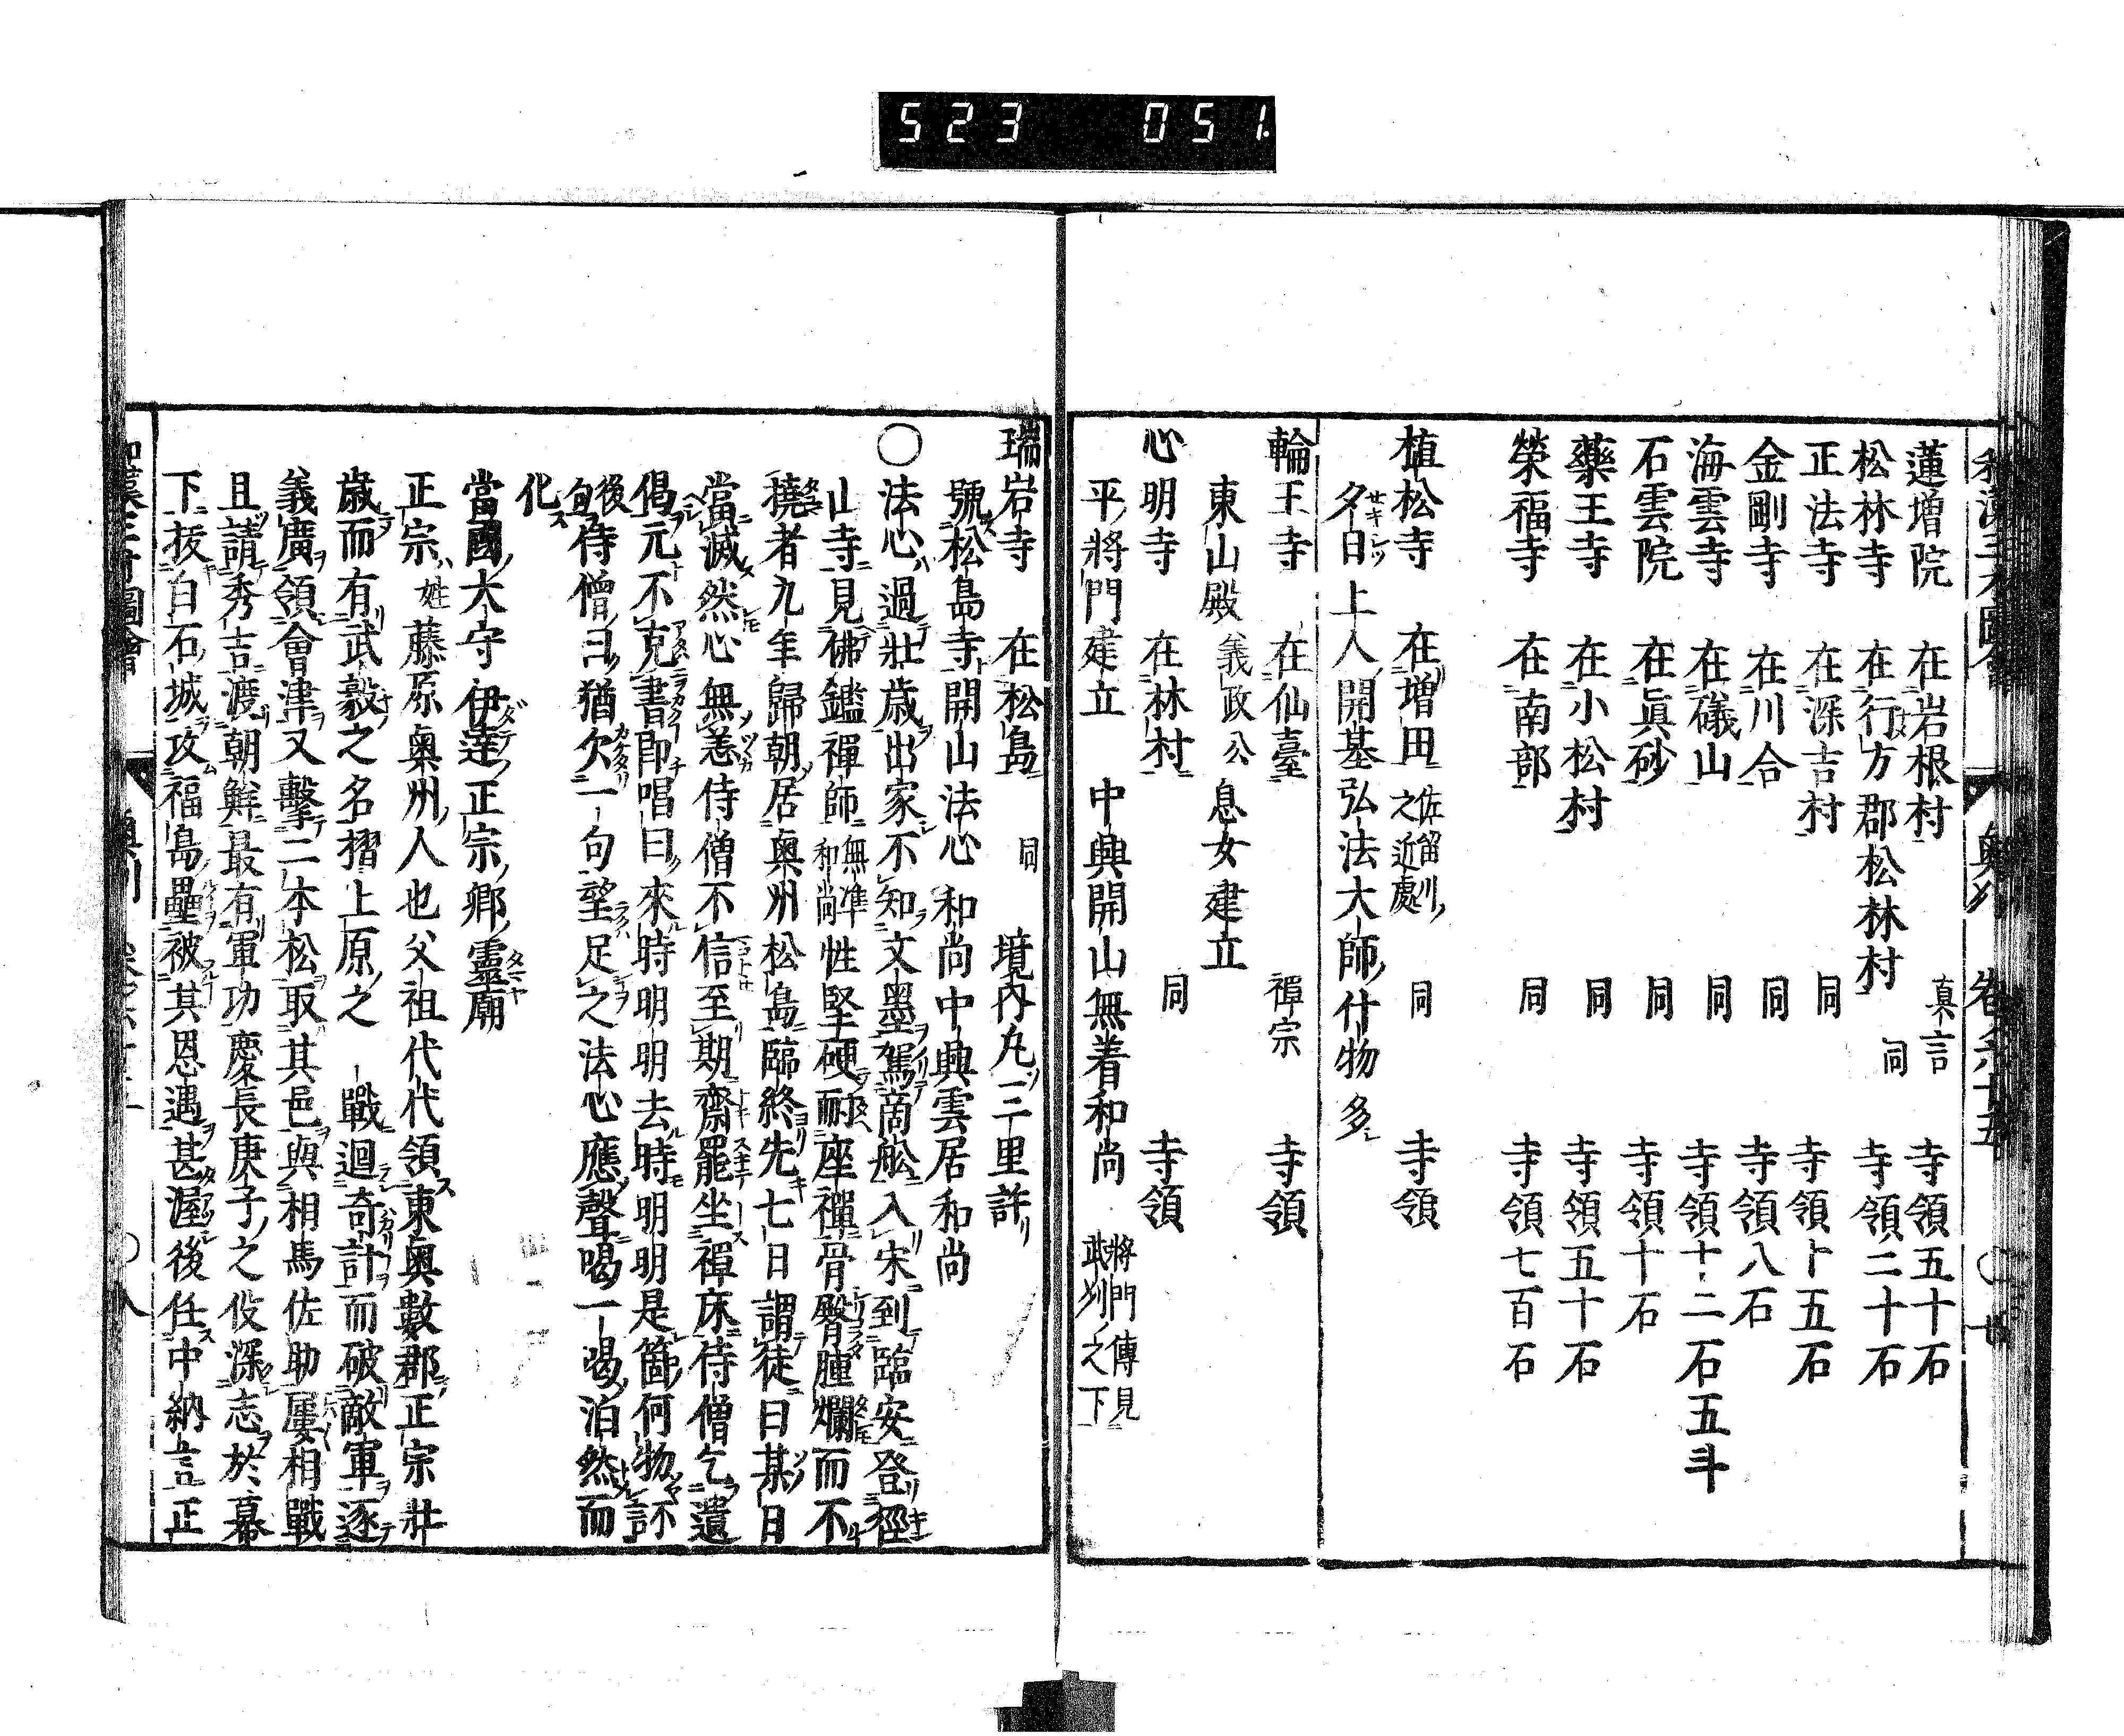 523 051.
蓮増院 在岩根村 真言 寺領五十石
松林寺 在行方郡松林村 同 寺領二十石
正法寺 在深吉村 同 寺領十五石
金剛寺 在川合 同 寺領八石
海雲寺 在礒山 同 寺領十二石五斗
石雲院 在眞砂 同 寺領十石
藥王寺 在小松村 同 寺領五十石
榮福寺 在南部 同 寺領七百石
植松寺 在増田 佐留刈之近處 同 寺領
夕日上人開基弘法大師什物多
輪王寺 在仙臺 禪宗 寺領
東山殿 義政公 息女建立
心明寺 在林村 同 寺領
平將門建立 中興開山無着和尚 將門傳見武刕之下
瑞岩寺 在松島 同 境内凡三里許
號松島寺開山法心和尚中興雲居和尚
○法心過壯歳出家不知文墨駕商舩入宋到臨安登徑
山寺見佛鑑禪師 無準和尚 性堅硬耐座禪骨臀腫爛而不
撓者九年歸朝居奥州松島臨終先七日謂徒曰某日
當滅然心無恙侍僧不信至期齋罷坐禪床侍僧乞遺
偈元不克書即唱曰來時明明去時明明是箇何物訝
後句侍僧曰猶欠一句望足之法心應聲喝一喝泊然而
化
當國大守伊達正宗郷靈廟
正宗 姓藤原奥州人也父祖代代領東奥數郡正宗壯
歳而有武毅之名摺上原之戰迴奇計而破敵軍逐
義廣領會津又擊二本松取其邑與相馬佐助屢相戰
且請秀吉渡朝鮮最有軍功慶長庚子之役深志於幕
下拔白石城攻福島壘被其恩遇甚渥後任中納言正